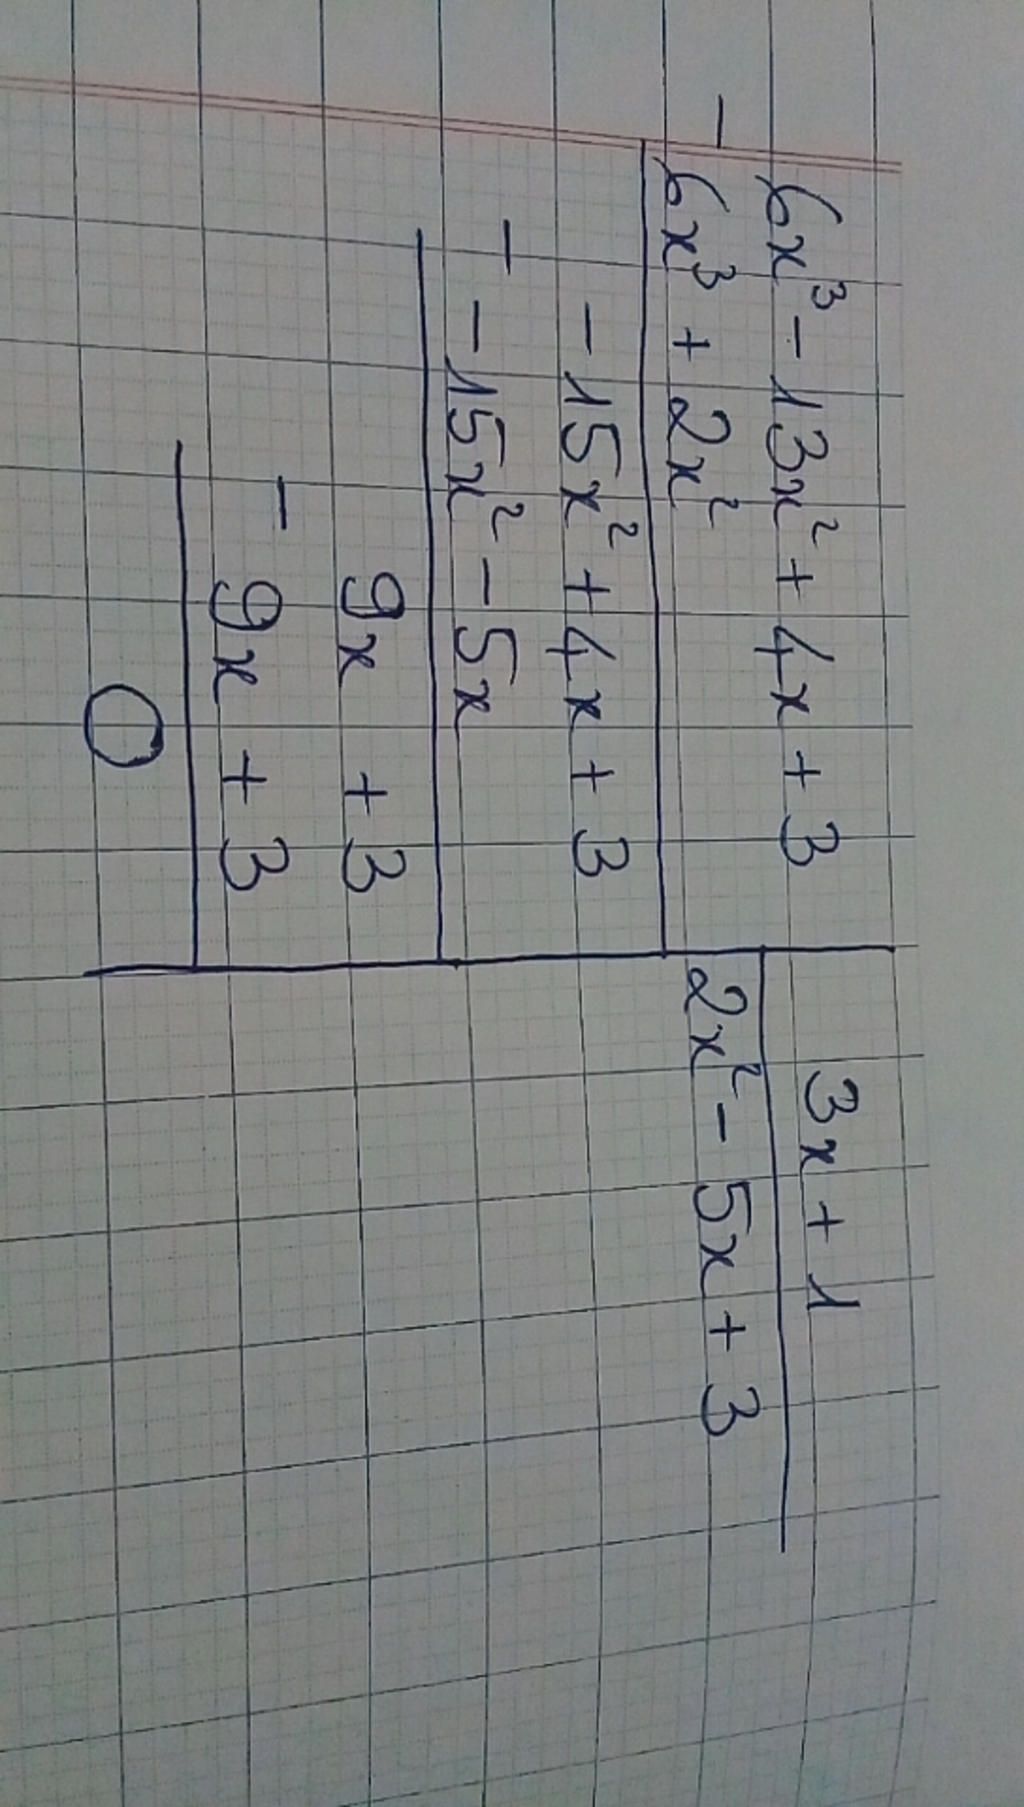 6x³ - 13x² + 4x + 3 | 3x + 1
- 6x³ + 2x² | 2x² - 5x + 3
- 15x² + 4x + 3
- - 15x² - 5x
9x + 3
- 9x + 3
0